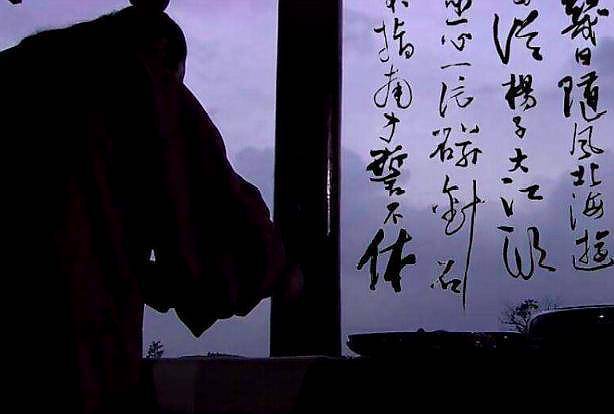 幾日隨風北海遊
從楊子大江頭
臣心一片磁針石
不指南方誓不休